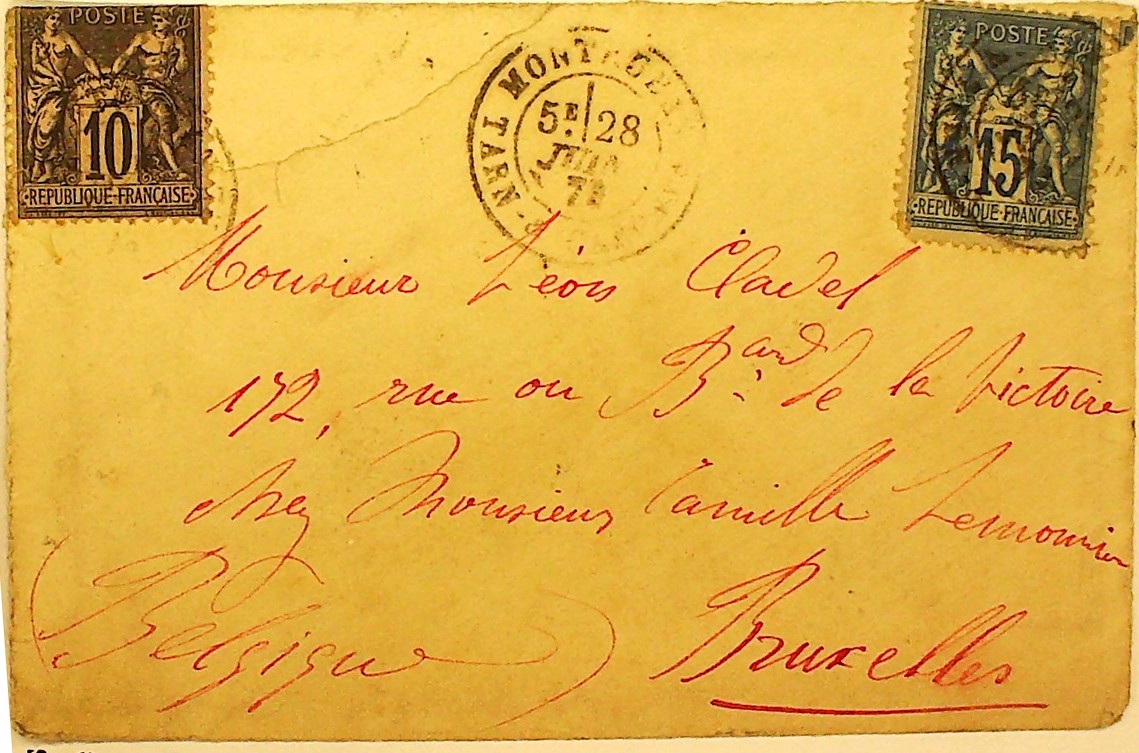 POSTE
10
RÉPUBLIQUE FRANÇAISE
5E 28
POSTE
15
RÉPUBLIQUE FRANÇAISE
Monsieur Léon Cladel
172, rue ou Bard de la Victoire
chez Monsieur Camille Lemonnier
(Belgique) Bruxelles